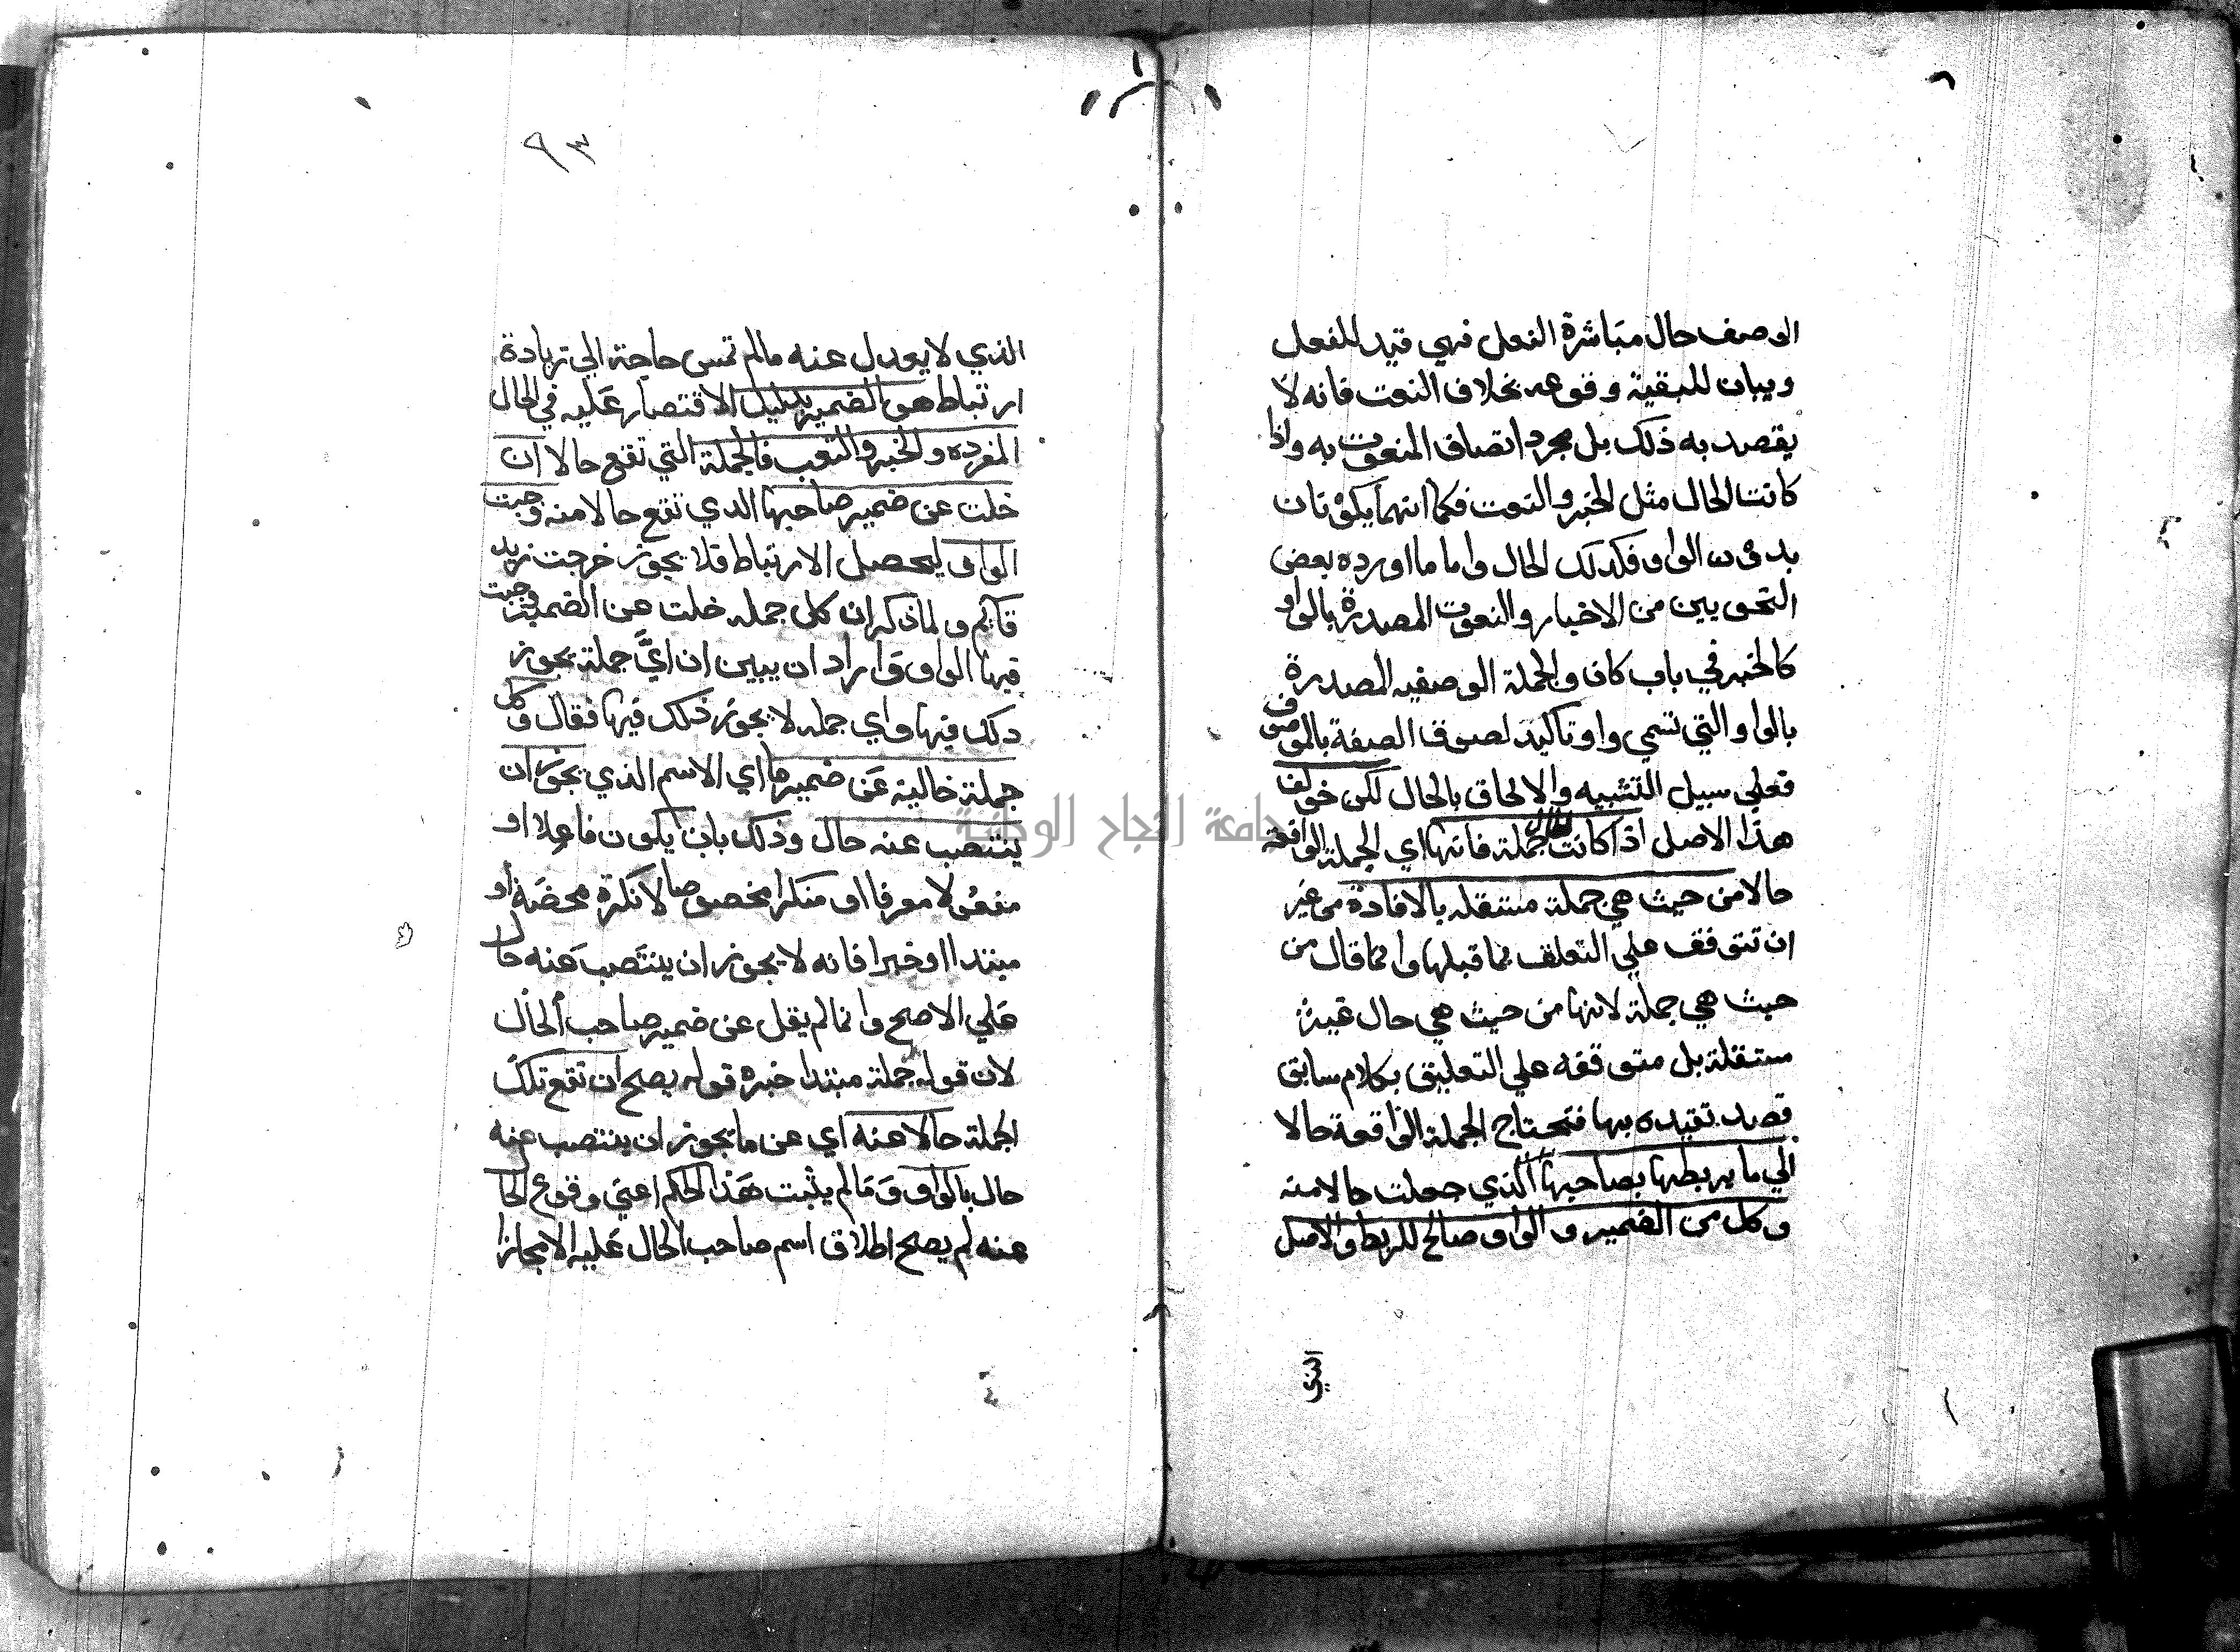 الوصف حال مباشرة الفعل فهي قيد للفعل
وبيان لكيفية وقوعه بخلاف النعت فانه لا
يقصد به ذلك بل مجرد اتصاف المنعوت به واذا
كانت الحال مثل الخبر والنعت فكما انهما يكونان
بدون الواو فكذلك الحال واما ما اورده بعض
النحويين من الاخبار والنعوت المصدرة بالواو
كالخبر في باب كان والجملة الوصفيه المصدرة
بالواو التي تسمي واو تاكيد لصوق الصفة بالموصوف
فعلي سبيل التشبيه والالحاق بالحال لكن خولف
هذا الاصل اذا كانت الحال جملة فانها اي الجملة الواقعة
حالا من حيث هي جملة مستقله بالافادة من غير
ان تتوقف علي التعلق بما قبلها وانما قال من
حيث هي جملة لانها من حيث هي حال غير
مستقلة بل متوقفه علي التعليق بكلام سابق
قصد تقييده بها فتحتاج الجملة الواقعة حالا
الي ما يربطها بصاحبها الذي جعلت حالا منه
وكل من الضمير والواو صالح للربط والاصل
الذي
٩٣
الذي لا يعدل عنه مالم تمس حاجة الي زيادة
ارتباط هو الضمير بدليل الاقتصار عليه في الحال
المفرده والخبر والنعت فالجملة التي تقع حالا ان
خلت عن ضمير صاحبها الذي تقع حالا منه وجبت
الواو ليحصل الارتباط فلا يجوز خرجت زيد
قائم ولما ذكر ان كل جمله خلت عن الضمير وجبت
فيها الواو واراد ان يبين ان ايَّ جملة يجوز
ذلك فيها واي جمله لا يجوز ذلك فيها فقال وكل
جملة خالية عن ضمير ما اي الاسم الذي يجوز ان
ينتصب عنه حال وذلك بان يكون فاعلا او
مفعولا معرفا او منكرا مخصوصا لا نكرة محضة او
مبتدا او خبرا فانه لا يجوز ان ينتصب عنه حال
علي الاصح وانما لم يقل عن ضمير صاحب الحال
لان قوله جملة مبتدا خبره قوله يصلح ان تقع تلك
الجملة حالا عنه اي عن ما يجوز ان ينتصب عنه
حال بالواو ومالم يثبت هذا الحكم اعني وقوع الحا
عنه لم يصلح اطلاق اسم صاحب الحال عليه الا مجازا
جامعة النجاح الوطنية